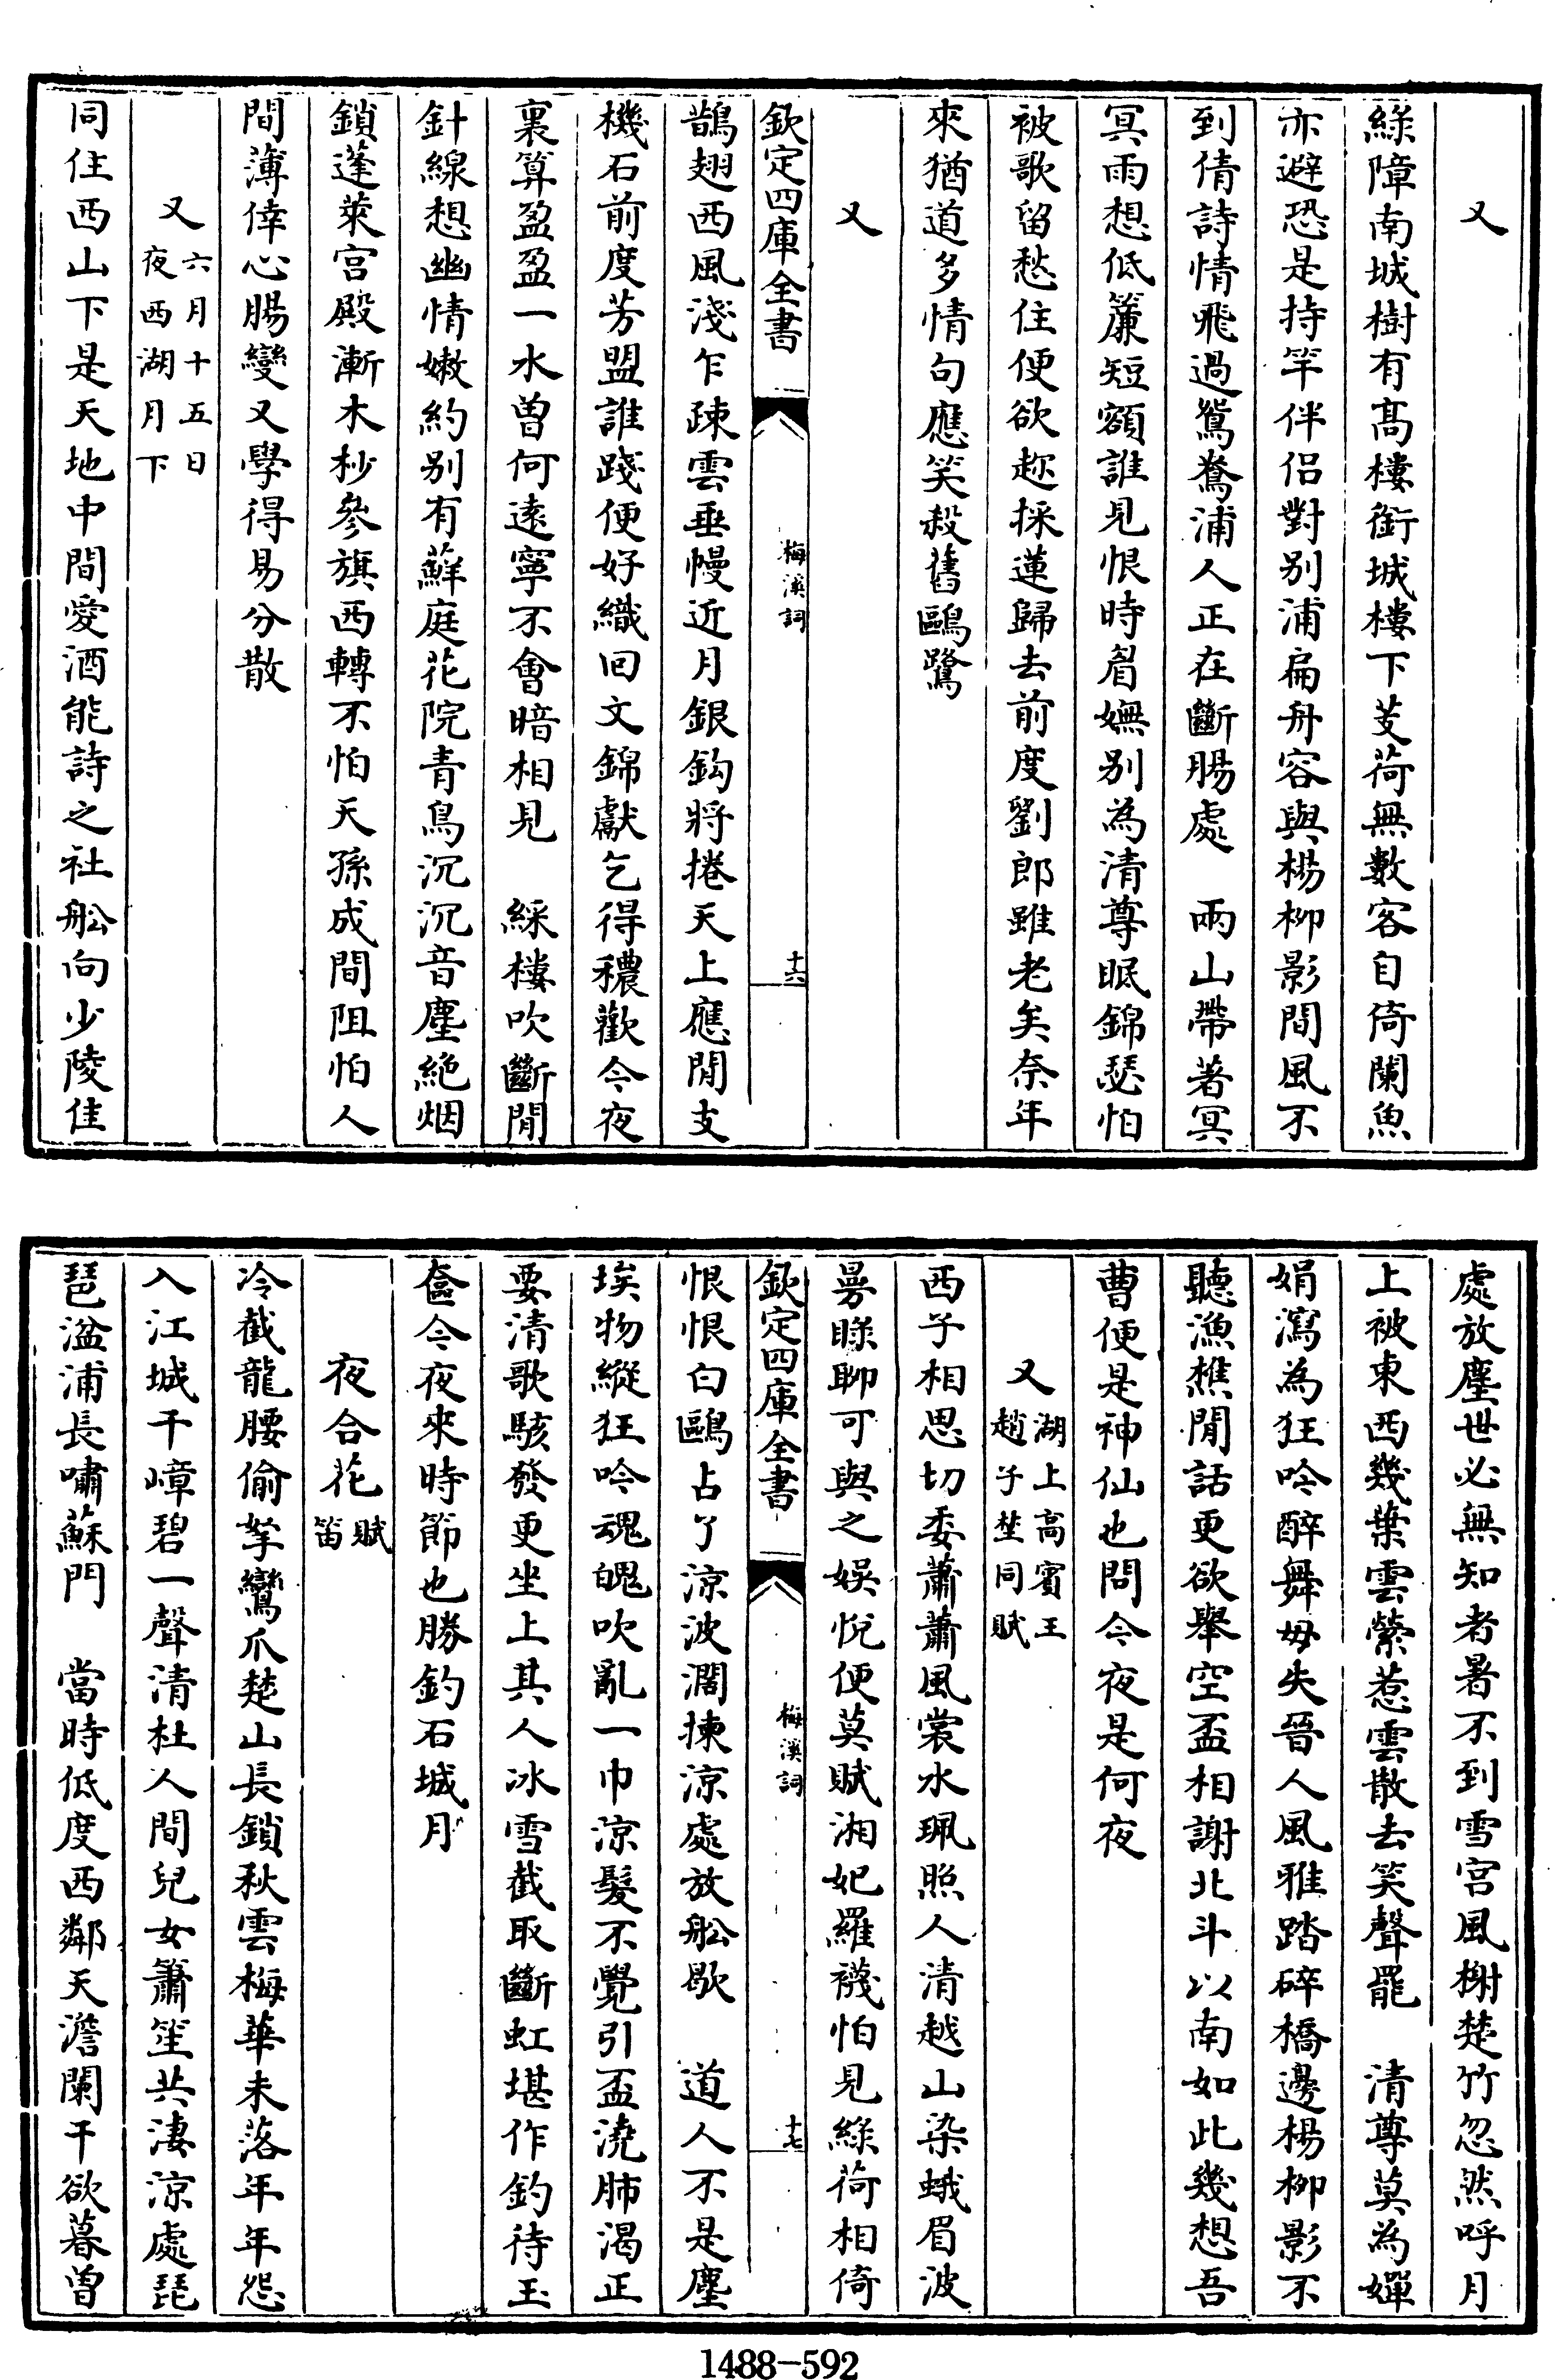 又
綠障南城樹有髙樓銜城樓下芰荷無數客自倚闌魚
亦避恐是持竿伴侣對别浦扁舟容與楊柳影間風不
到倩詩情飛過鴛鴦浦人正在斷腸處　兩山帶著冥
冥雨想低簾短額誰見恨時眉嫵别為清尊眠錦瑟怕
被歌留愁住便欲趂採蓮歸去前度劉郎雖老矣奈年
來猶道多情句應笑殺舊鷗鷺
又
欽定四庫全書
梅溪詞
十六
鵲翅西風淺乍疎雲垂幔近月銀鈎將捲天上應閒支
機石前度芳盟誰踐便好織囘文錦獻乞得穠歡今夜
裏算盈盈一水曽何逺寧不會暗相見　綵樓吹斷閒
針線想幽情嫩約别有蘚庭花院青鳥沉沉音塵絶烟
鎖蓬萊宫殿漸木杪參旗西轉不怕天孫成間阻怕人
間薄倖心腸變又學得易分散
又六月十五日
夜西湖月下
同住西山下是天地中間愛酒能詩之社舩向少陵佳
處放塵世必無知者暑不到雪宫風榭楚竹忽然呼月
上被東西幾葉雲縈惹雲散去笑聲罷　清尊莫為嬋
娟瀉為狂吟醉舞毋失晉人風雅踏碎橋邊楊柳影不
聽漁樵閒話更欲舉空盃相謝北斗以南如此幾想吾
曹便是神仙也問今夜是何夜
又湖上髙賓王
趙子埜同賦
西子相思切委蕭蕭風裳水珮照人清越山染蛾眉波
曼睩聊可與之娱悅便莫賦湘妃羅襪怕見綠荷相倚
欽定四庫全書
梅溪詞
十七
恨恨白鷗占了涼波濶揀涼處放舩歇　道人不是塵
埃物縱狂吟魂魄吹亂一巾涼髮不覺引盃澆肺渴正
要清歌駭發更坐上其人冰雪截取斷虹堪作釣待玉
奩今夜來時節也勝釣石城月
夜合花賦笛
冷截龍腰偷拏鸞爪楚山長鎖秋雲梅華未落年年怨
入江城千嶂碧一聲清杜人間兒女簫笙共淒涼處琵
琶湓浦長嘯蘇門　當時低度西鄰天澹闌干欲暮曽
1488-592